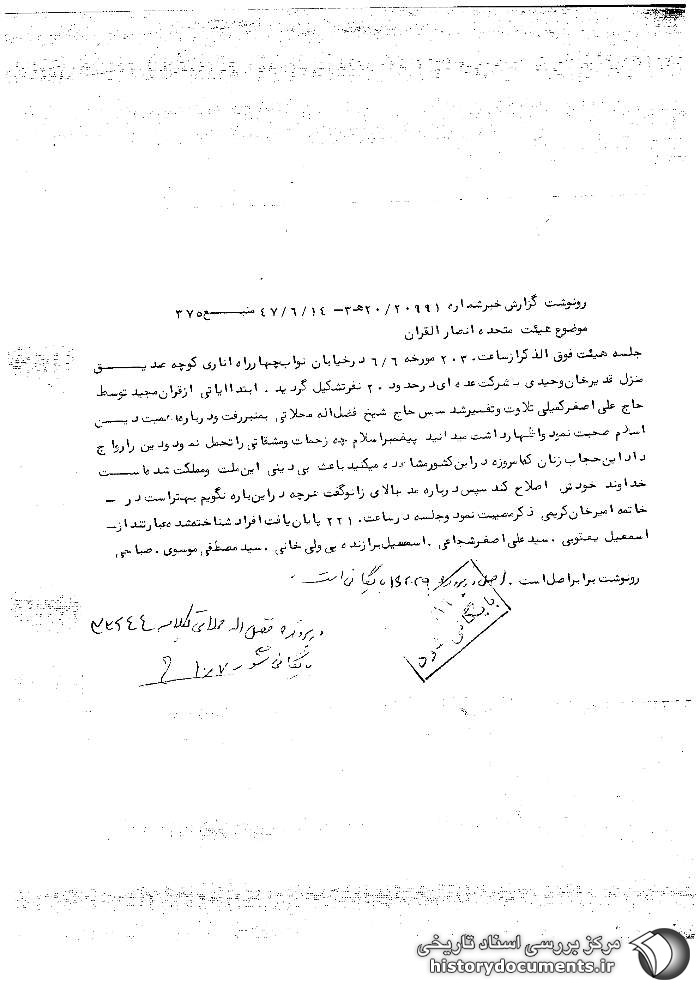 رونوشت گزارش خبر شماره ۲۰/۲۰۹۹۱هـ۳ – ۴۷/۶/۱۴ منبـــع ۳۷۵
موضوع هیئت متحده انصار القران
جلسه هیئت فوق الذکر از ساعت ۲۰۳۰ مورخه ۶/۶ در خیابان نواب چهارراه اناری کوچه صدیـــق
منزل قدیرخان وحیدی با شرکت عده ای در حدود ۲۰ نفر تشکیل گردید . ابتدا ایاتی از قران مجید توسط
حاج علی اصغر کمیلی تلاوت و تفسیر شد سپس حاج شیخ فضل اله محلاتی بمنبر رفت و درباره دیـــن
اسلام صحبت نمود و اظهار داشت میدانید پیغمبر اسلام چه زحمات و مشقاتی را تحمل نمود و دین را رواج
داد این حجاب زنان که امروزه در این کشور مشاهده میکنید باعث بی دینی این ملت و مملکت شده است
خداوند خودش اصلاح کند سپس درباره مد بالای زانو گفت هرچه در این باره نگویم بهتر است در –
خاتمه امیرخان کریمی ذکر مصیبت نمود و جلسه در ساعت ۲۲۱۰ پایان یافت افراد شناخته شده عبارتند از–
اسمعیل یعقوبی . سید علی اصغر شجاعی . اسمعیل برازنده بی ولی خانی . سید مصطفی موسوی . صباحی
رونوشت برابر اصل است . اصل در پرونده بایگانی است .
بایگانی شود
در پرونده فضل اله محلاتی بکلاسه ۳۲۶۴۴
بایگانی شود
مرکز بررسی اسناد تاریخی
historydocuments.ir